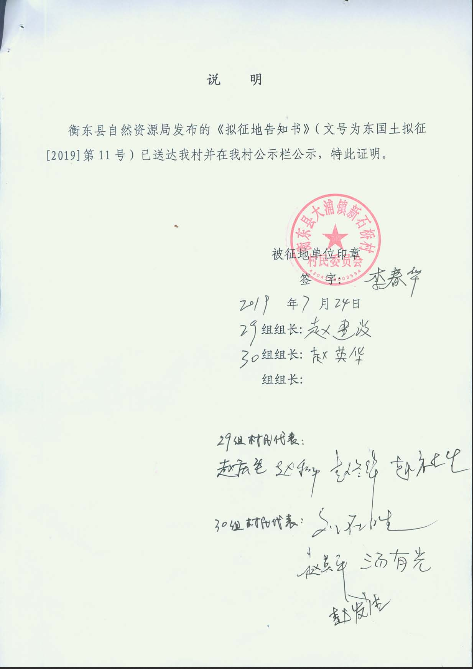 说 明
衡东县自然资源局发布的《拟征地告知书》（文号为东国土拟征
[2019]第 11 号）已送达我村并在我村公示栏公示，特此证明。
衡东县大浦镇新石桥村
村民委员会
被征地单位印章
签 字： 李春华
2019 年 7 月 24 日
29 组组长：赵建设
30 组组长：赵英华
组组长：
29组村民代表：
30组村民代表：
汤有光